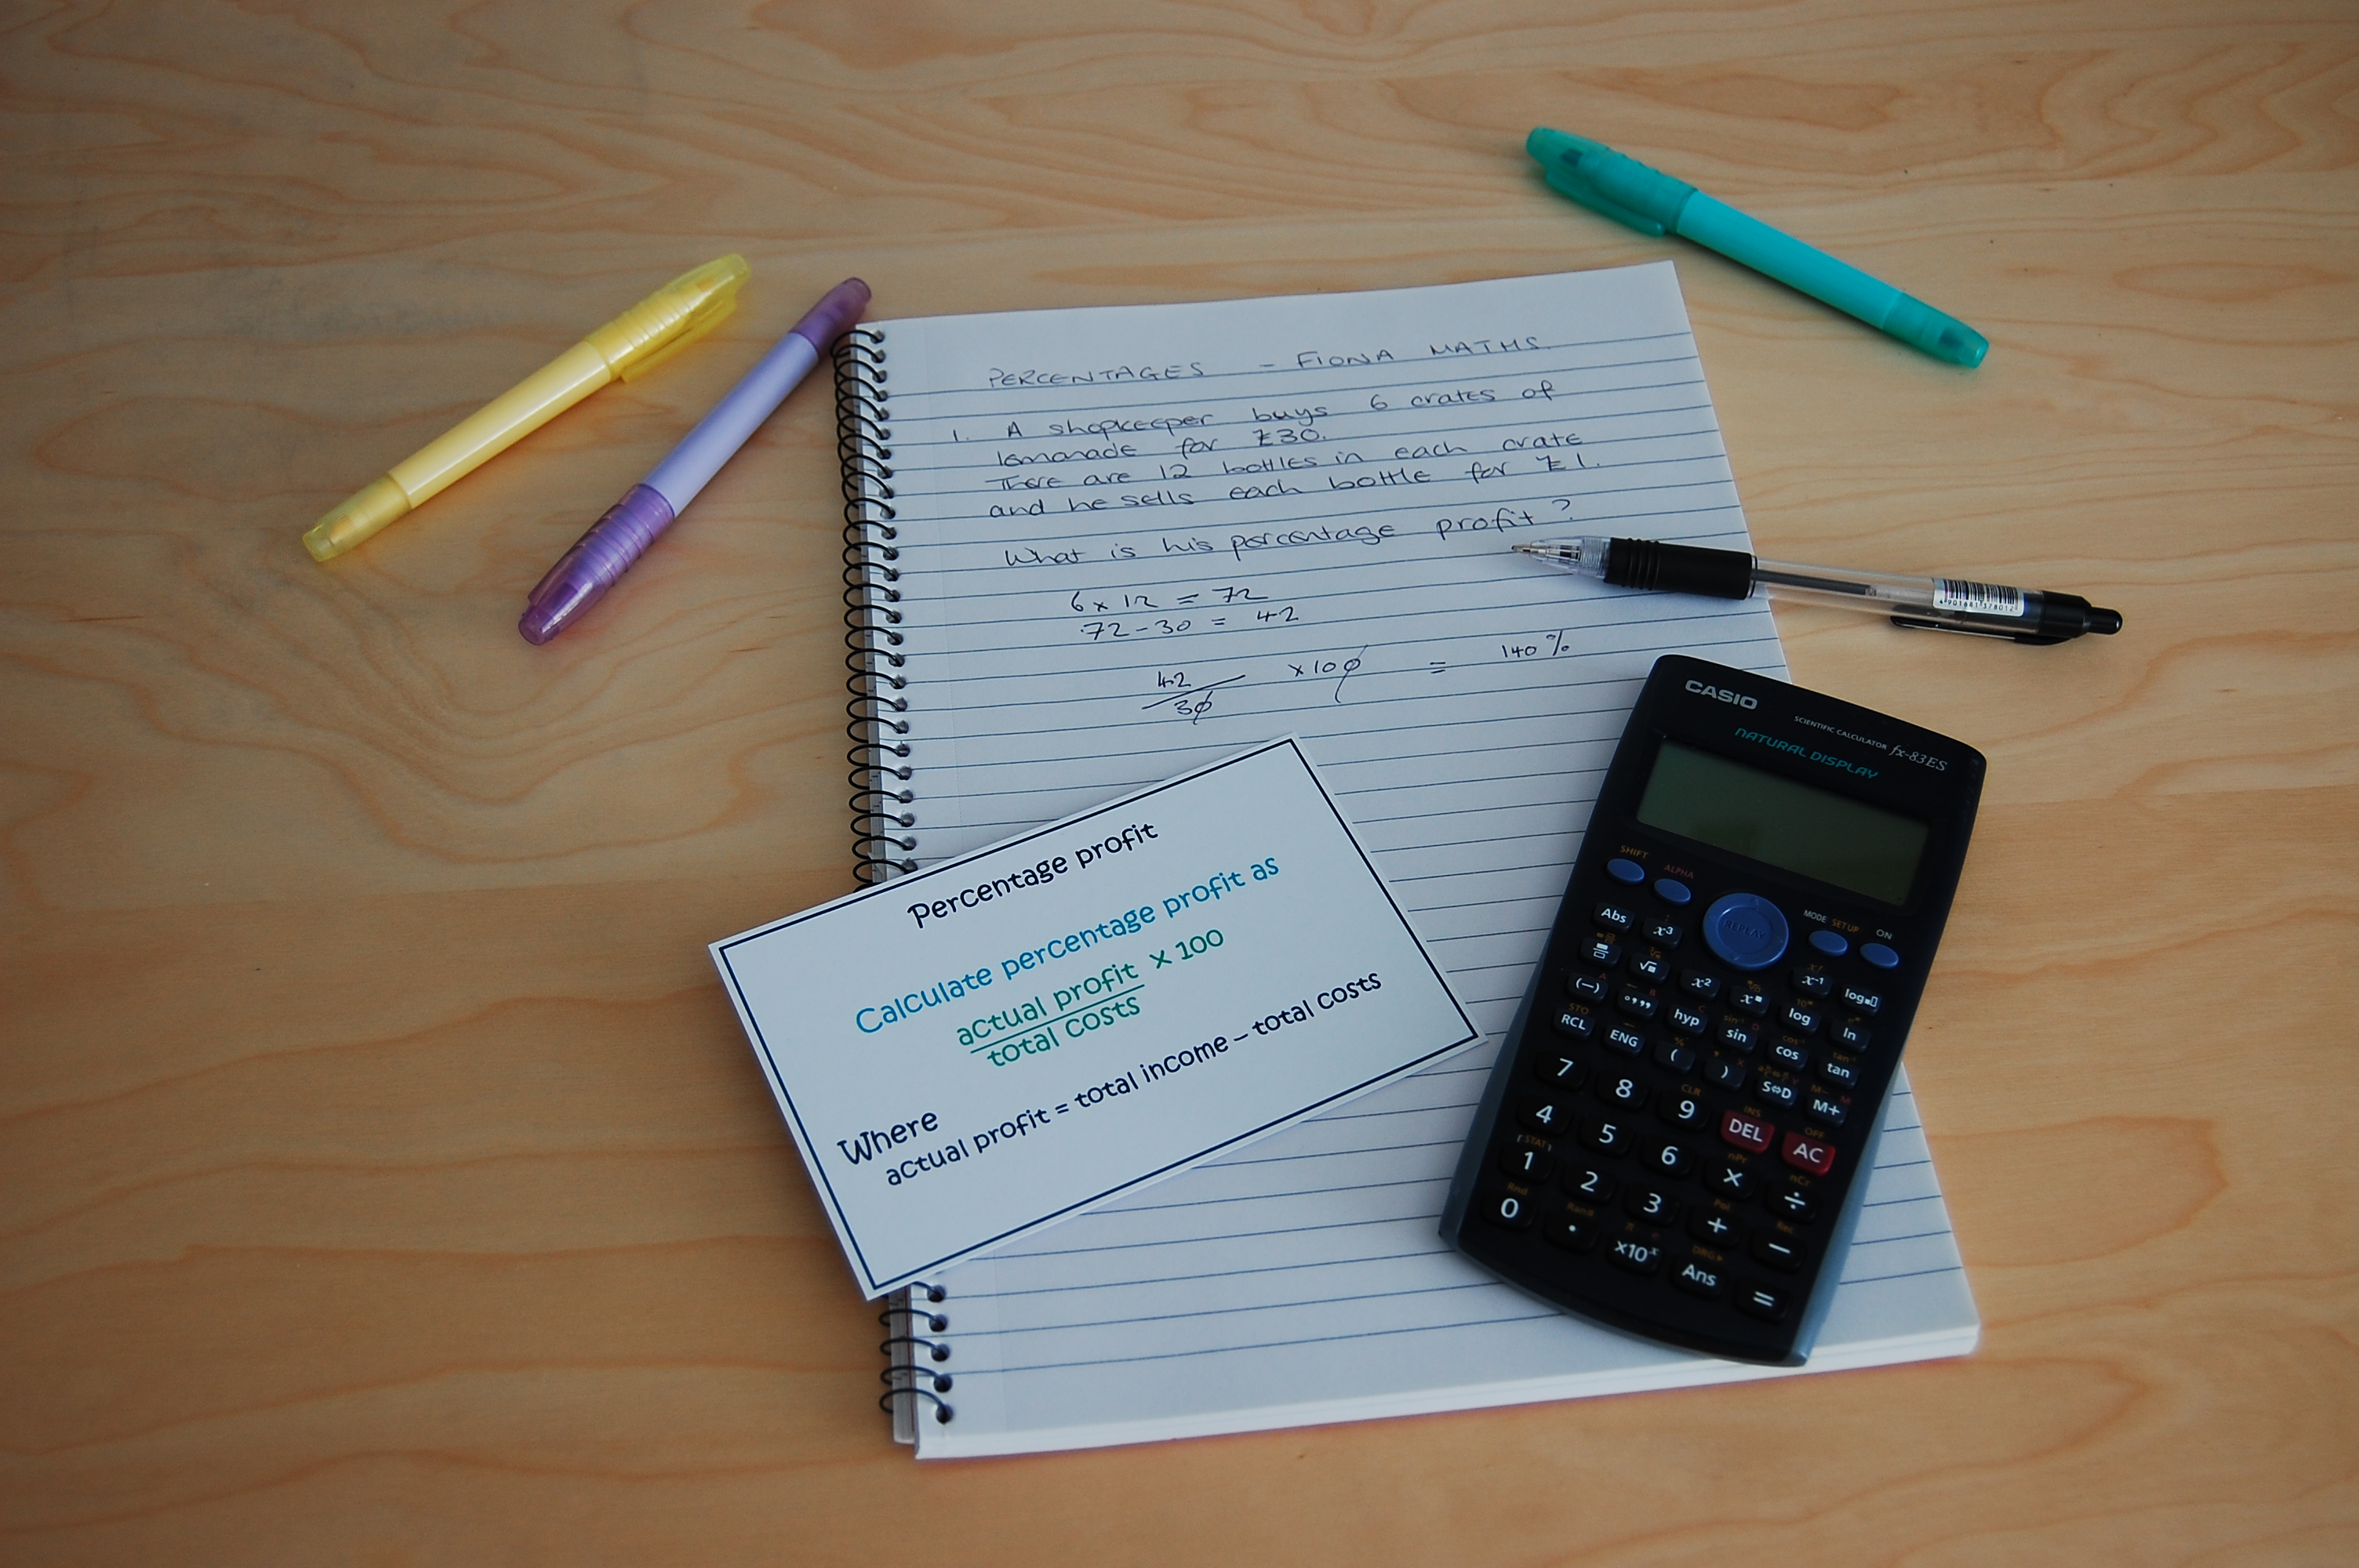 PERCENTAGES - FIONA MATHS.
1. A shopkeeper buys 6 crates of
lemonade for £30.
There are 12 bottles in each crate
and he sells each bottle for £1.
What is his percentage profit?
6 x 12 = 72
72 - 30 = 42
42
30 x 100 = 140%
Percentage profit
Calculate percentage profit as
actual profit x 100
total costs
Where
actual profit = total income – total costs
4901681378012
CASIO
SCIENTIFIC CALCULATOR fx-83ES
NATURAL DISPLAY
SHIFT ALPHA REPLAY MODE SETUP ON
Abs x³ x⁻¹ log
√ x² log ln
(−) °’” hyp sin cos tan
STO
RCL ENG ( ) S⇔D M+
CLR INS OFF
7 8 9 DEL AC
4 5 6 × ÷
STAT nPr nCr
1 2 3 + −
Rnd Ran# π Pol Rec
0 . ×10ˣ Ans =
DRG▸